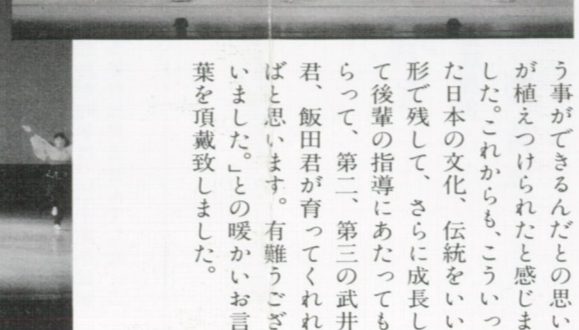 う事ができるんだとの思い
が植えつけられたと感じま
した。これからも、こういっ
た日本の文化、伝統をいい
形で残して、さらに成長し
て後輩の指導にあたっても
らって、第二、第三の武井
君、飯田君が育ってくれれ
ばと思います。有難うござ
いました。」との暖かいお言
葉を頂戴致しました。